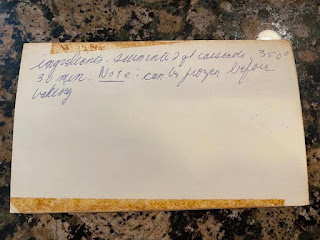 ingredients. 2 qt casserole. 350°
30 min. Note: can be frozen before
baking